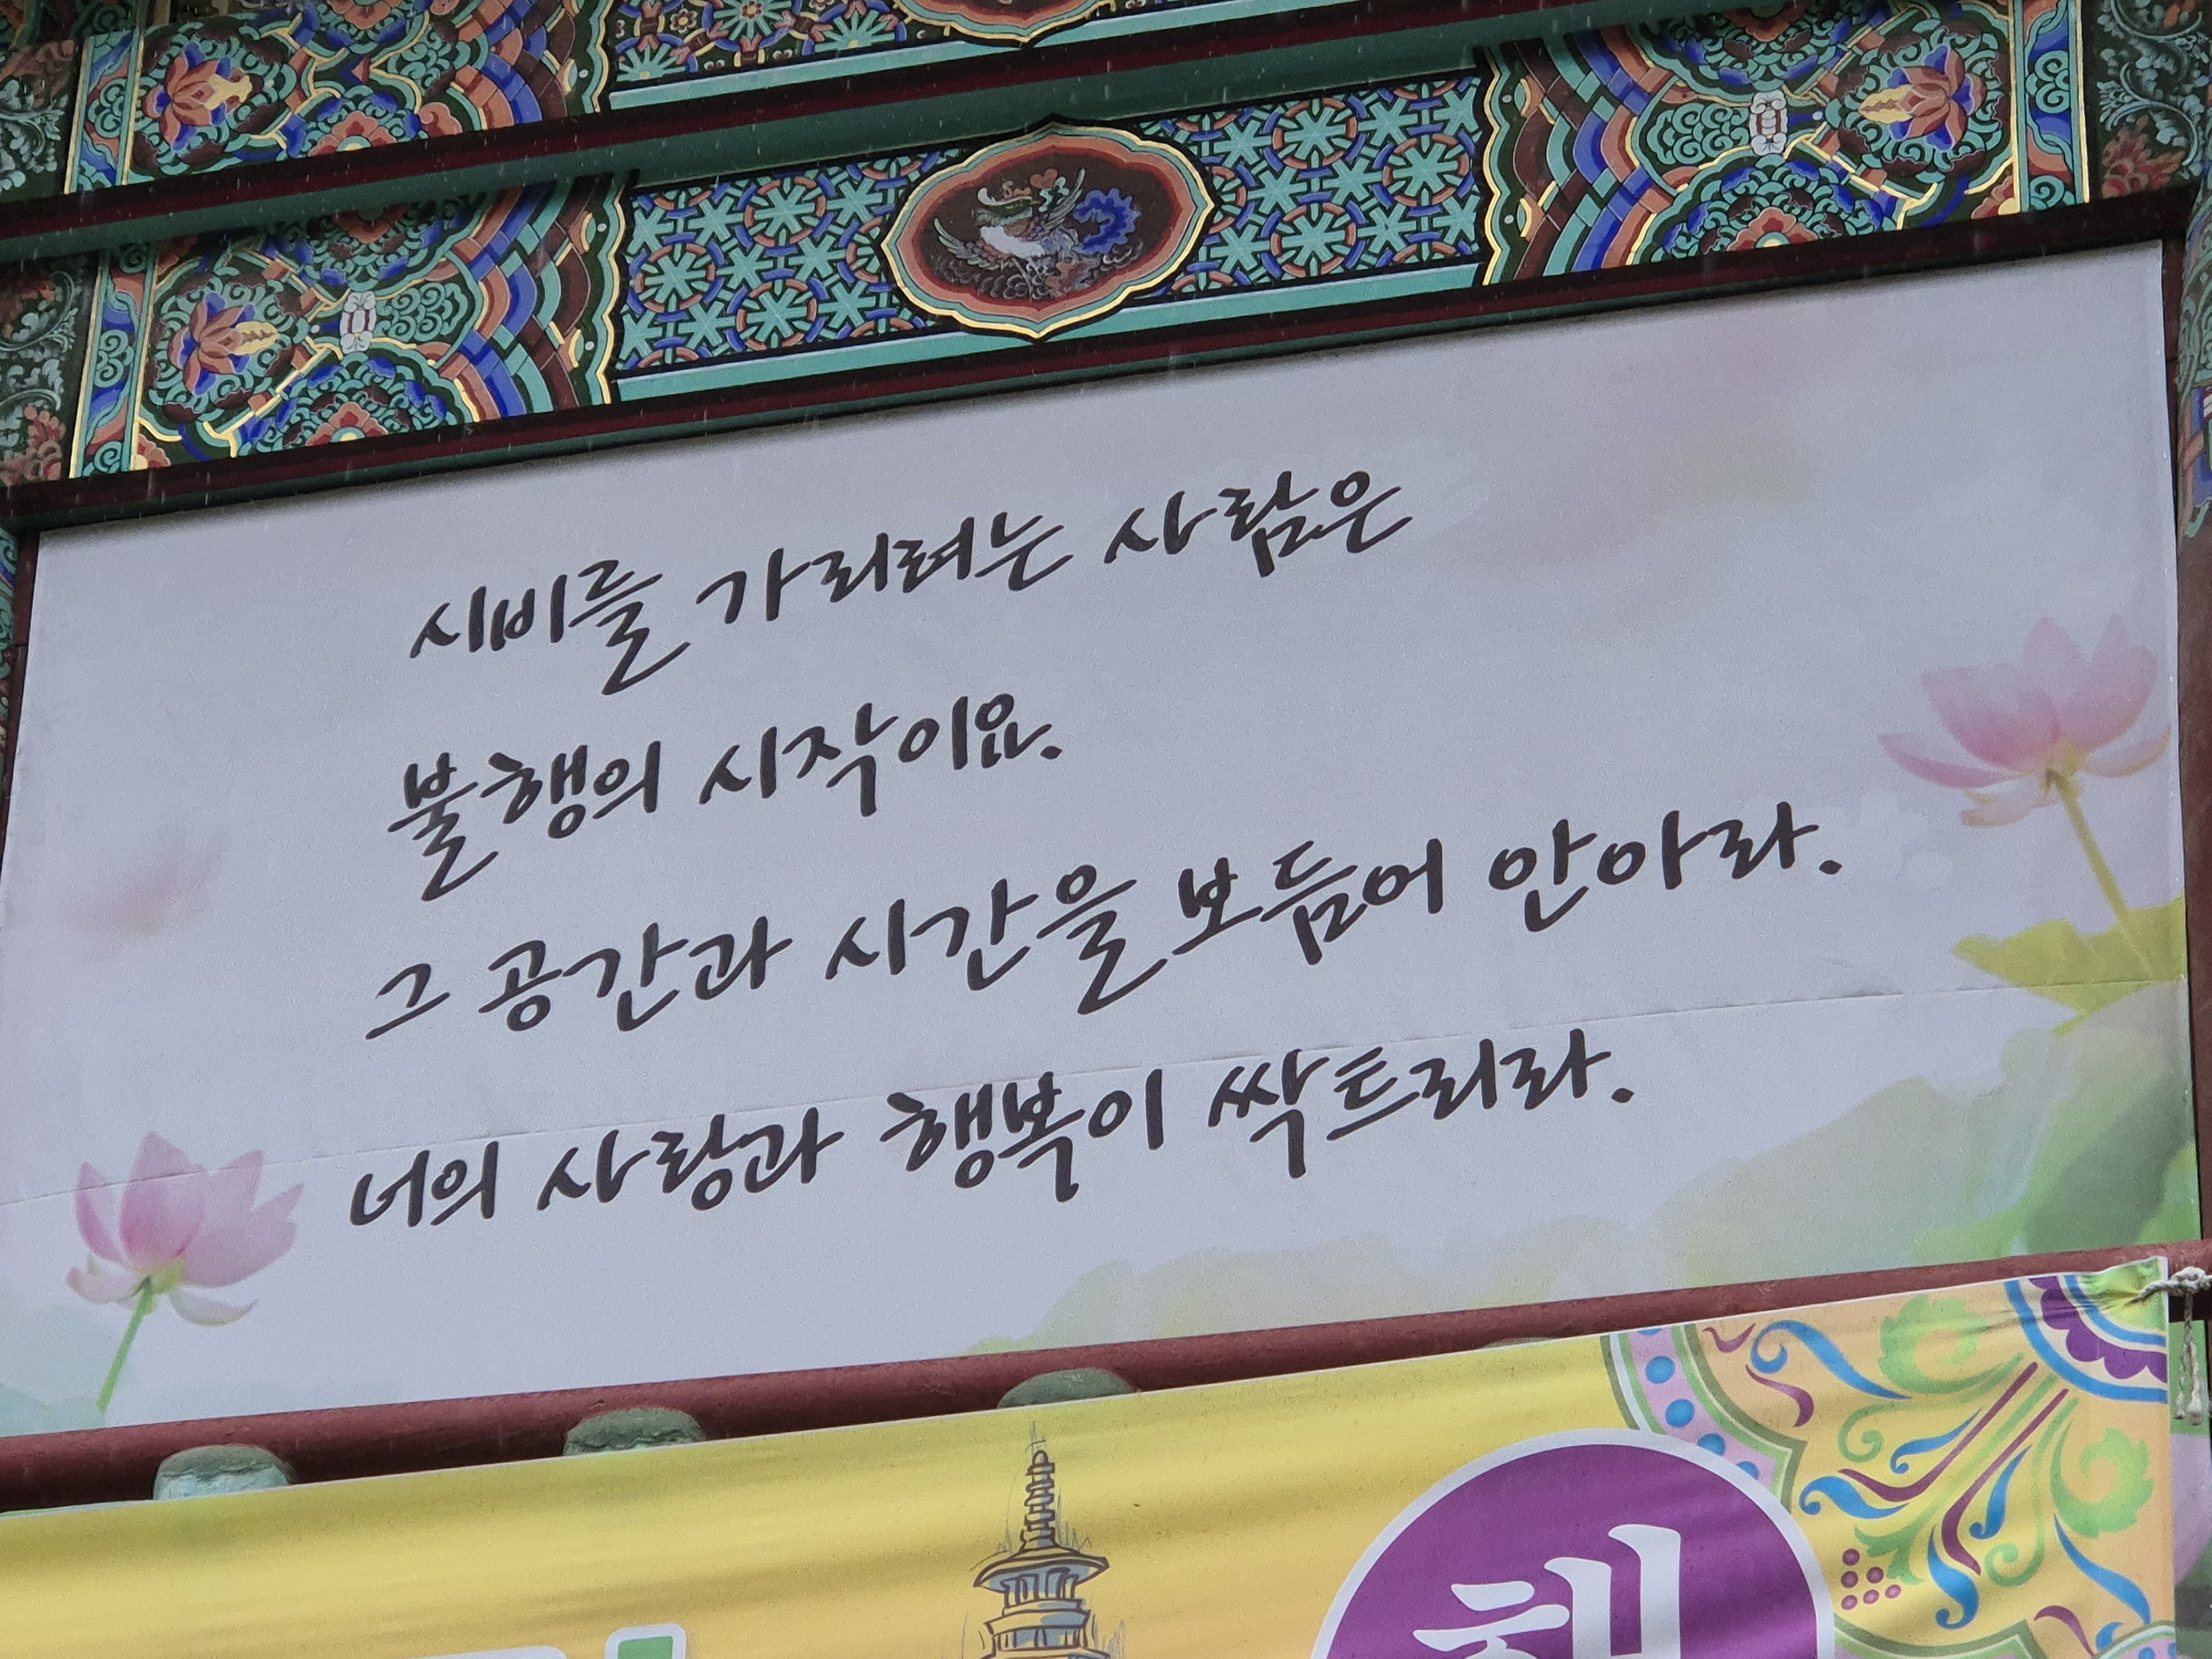 시비를 가리려는 사람은
불행의 시작이요.
그 공간과 시간을 보듬어 안아라.
너의 사랑과 행복이 싹트리라.